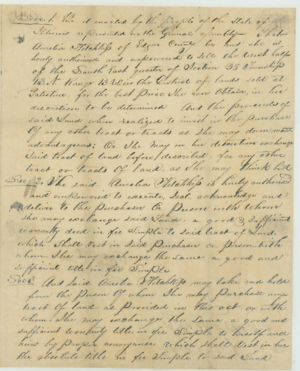 Sec 1. Be it enacted by the People of the State of
Illinois represented in the General Assembly That
Amelia Fitchship of Edgar County be and she is
hereby authorized and empowered to Sell the West half
of the South East quarter of Section 35 Township
No. N Range No. W in the District of lands sold at
Palestine for the best Price She can Obtain, in her
discretion to be determined And the proceeds of
said Land when realized to invest in the purchase
Of any other tract or tracts as She may deem
advantageous; Or She may in her discretion exchange
Said tract of land before described, for any other
tract or tracts of land, as she may think best
Sec 2. The said Amelia is hereby authorized
and empowered to execute, and acknowledge and
deliver to the Purchaser Or Person with Whom
She may exchange said Land a good & Sufficient
warranty deed in fee Simple to said tract of Land,
which Shall vest in said Purchaser or Person with
whom She may exchange the same a good and
sufficient title in fee Simple
Sec 3. And said Amelia may take and hold
from the Person Of whom She may Purchase any
tract Of Land as Provided in this act or with
whom She may exchange the same a good and
sufficient title in fee Simple to herself and
heirs by proper conveyance & which shall vest in her
the Absolute title in fee Simple to said Land